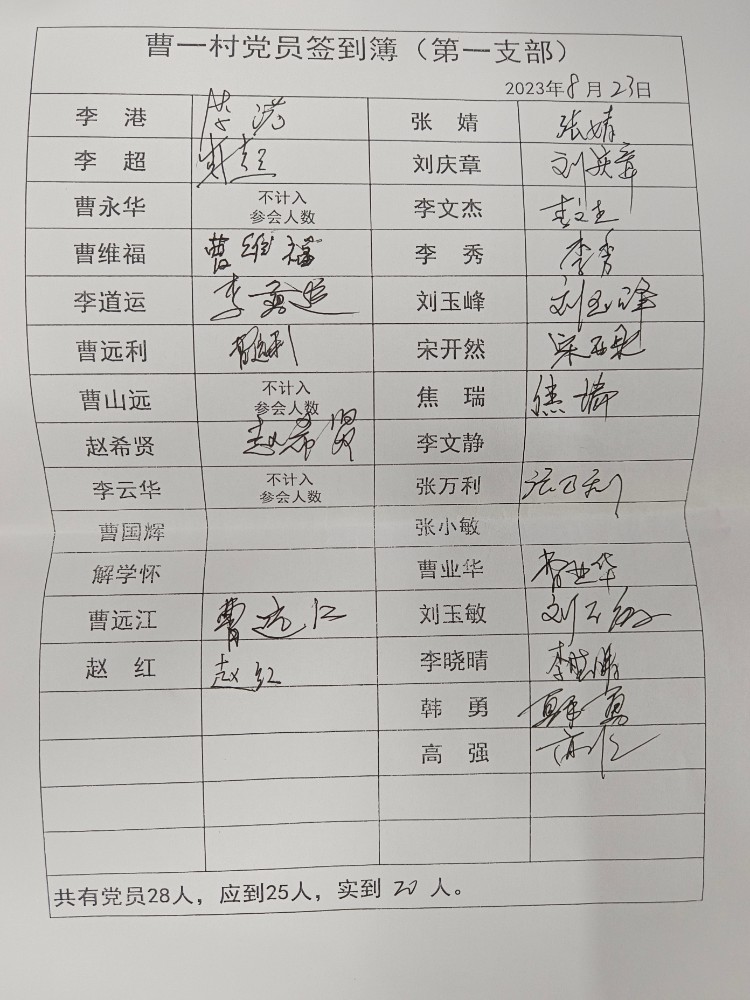 曹一村党员签到簿（第一支部）
2023年8月23日
李 港 李港 张 婧 张婧
李 超 李超 刘庆章 刘庆章
曹永华 不计入 李文杰 李文杰
参会人数
曹维福 曹维福 李 秀 李秀
李道运 李道运 刘玉峰 刘玉峰
曹远利 曹远利 宋开然 宋开然
曹山远 不计入 焦 瑞 焦瑞
参会人数
赵希贤 赵希贤 李文静
李云华 不计入 张万利 张万利
参会人数
曹国辉 张小敏
解学怀 曹业华 曹业华
曹远江 曹远江 刘玉敏 刘玉敏
赵 红 赵红 李晓晴 李晓晴
韩 勇 韩勇
高 强 高强
共有党员28人，应到25人，实到 20 人。